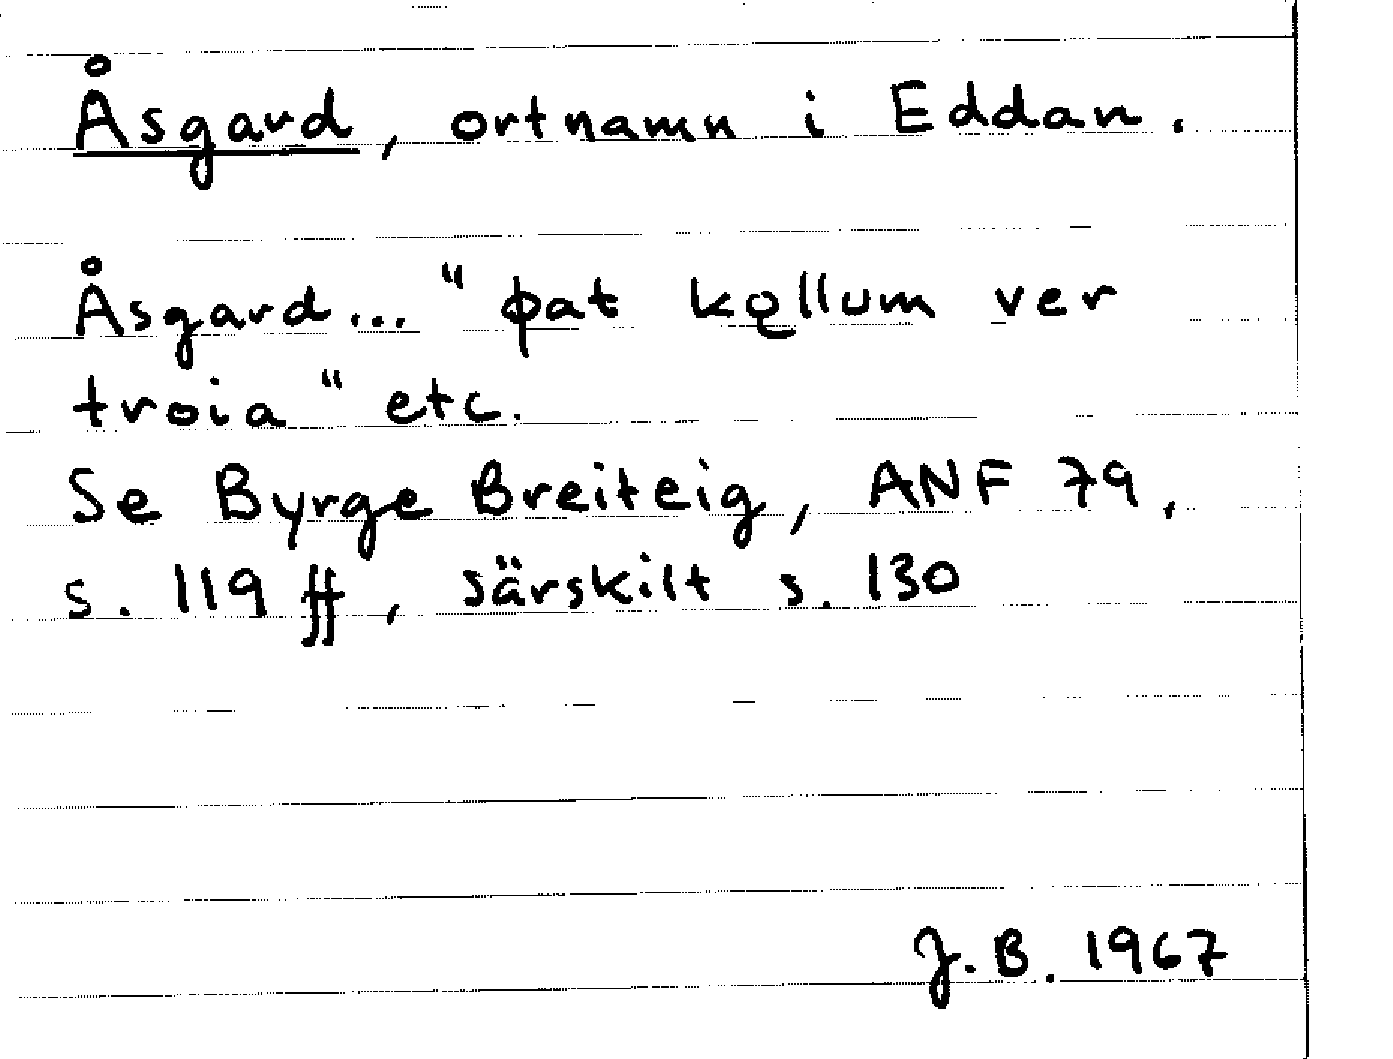 Åsgard, ortnamn i Eddan.
Åsgard... "þat kǫllum ver
troia" etc.
Se Byrge Breiteig, ANF 79,
s. 119 ff, särskilt s. 130
J.B. 1967